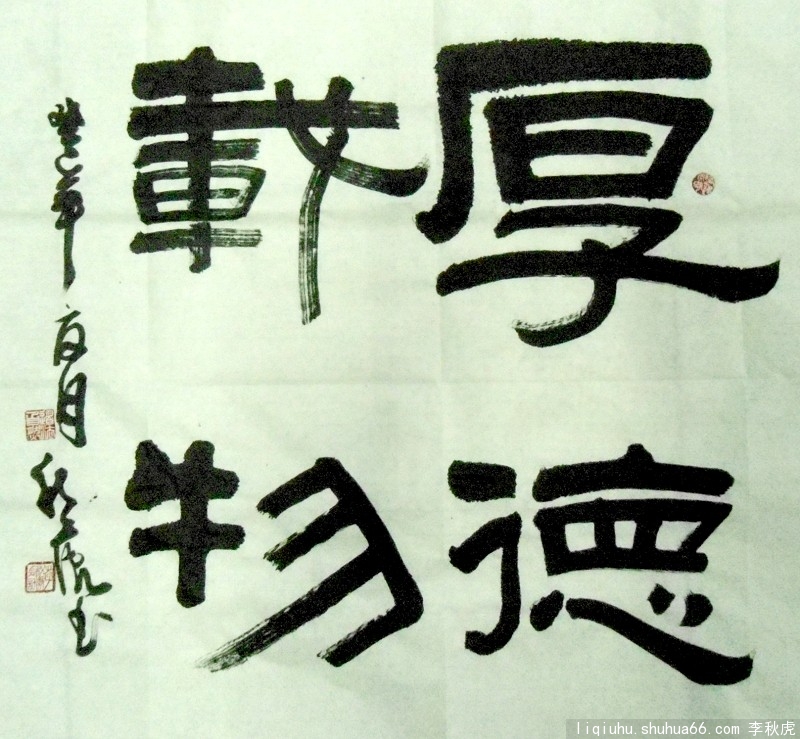 厚德
載物
癸巳年夏月秋虎书
liqiuhu.shuhua66.com 李秋虎